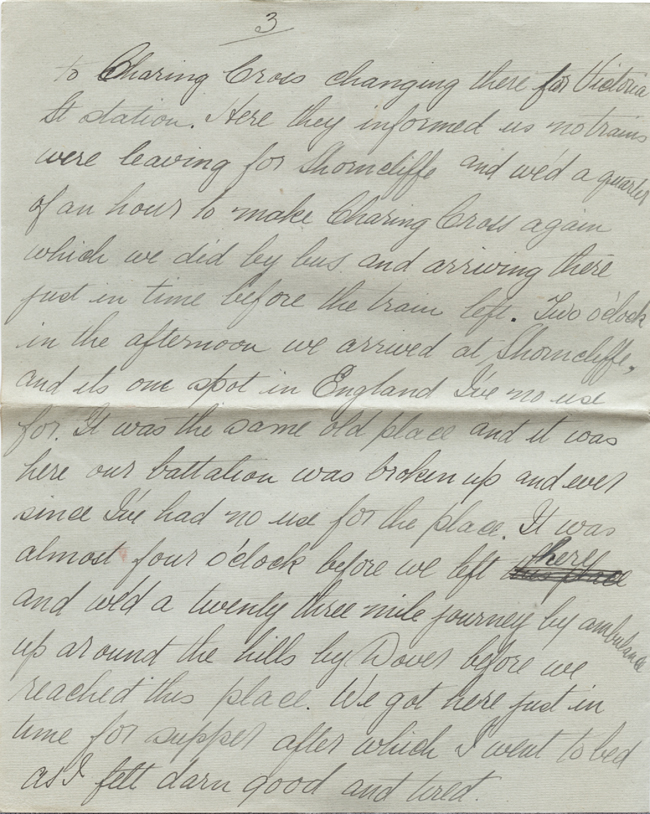 3
to Charing Cross changing there for Victoria
St station. Here they informed us no trains
were leaving for Shorncliffe and we'd a quarter
of an hour to make Charing Cross again
which we did by bus and arriving there
just in time before the train left. Two o'clock
in the afternoon we arrived at Shorncliffe,
and its one spot in England I've no use
for. It was the same old place and it was
here our battalion was broken up and ever
since I've had no use for the place. It was
almost four o'clock before we left here
and we'd a twenty three mile journey by ambulance
up around the hills by Dover before we
reached this place. We got here just in
time for supper after which I went to bed
as I felt darn good and tired.